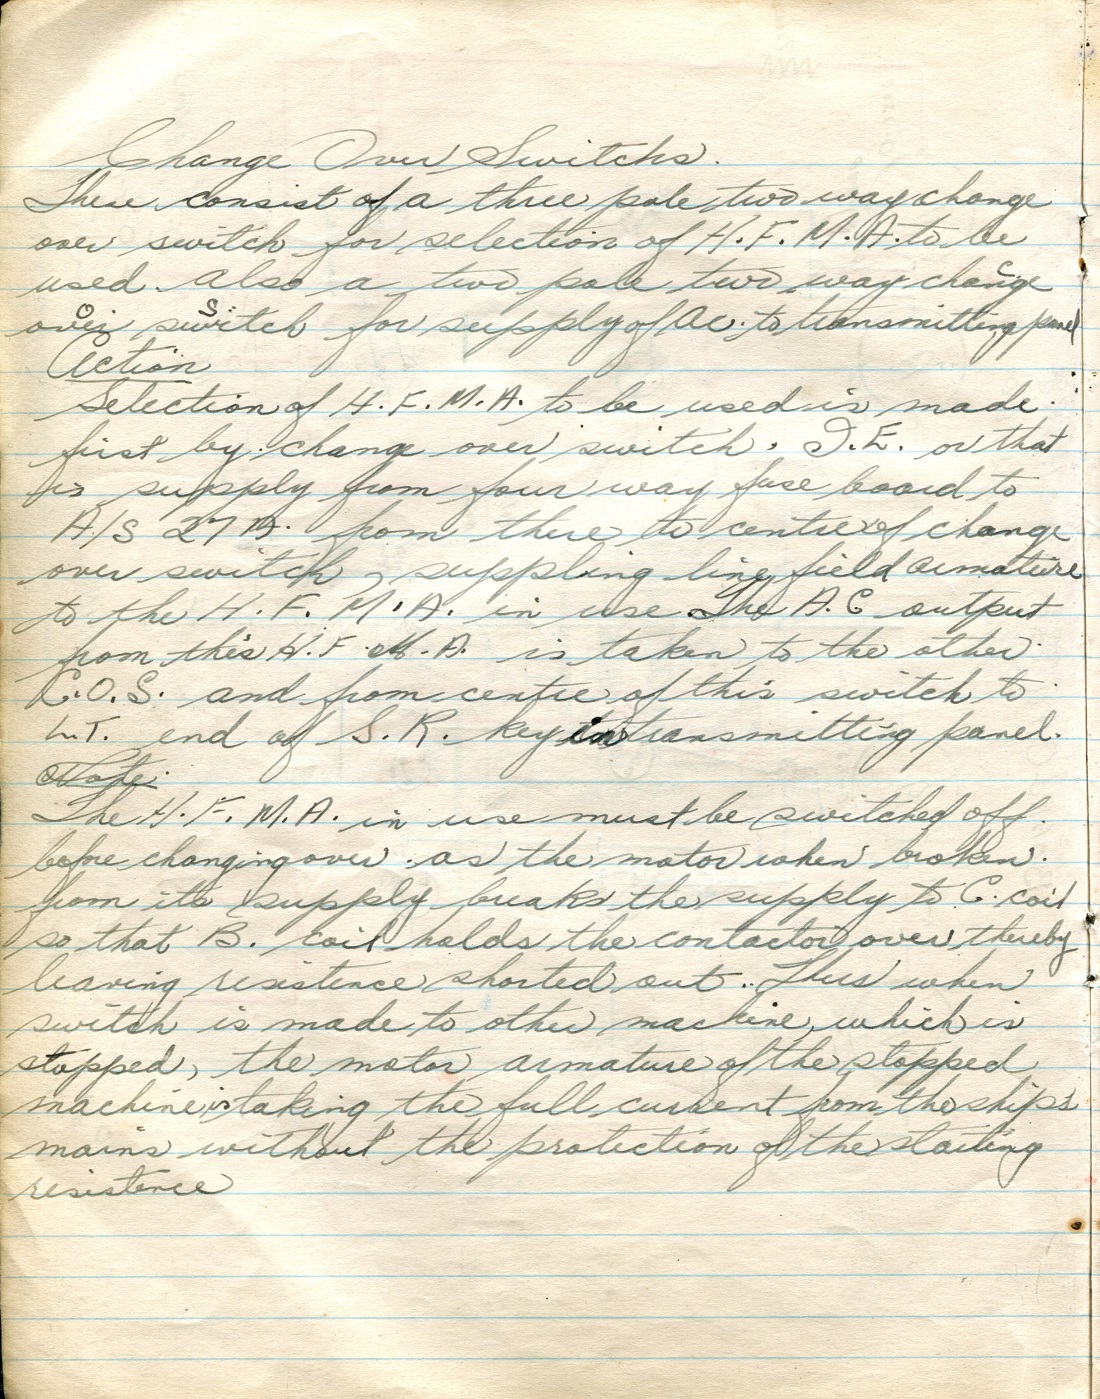 Change Over Switchs.
These consist of a three pole two way change
over switch for selection of H.F.M.A. to be
used. Also a two pole two way change
over switch for supply of AC. to transmitting panel
C
O S
Action
Selection of H.F.M.A. to be used is made
first by change over switch, I.E. or that
is supply from four way fuse board to
A/S 27 from there to centre of change
over switch, suppling line, field armature
to the H.F.M.A. in use. The A.C output
from this H.F.M.A. is taken to the other
C.O.S. and from centre of this switch to
L.T. end of S.R. key in transmitting panel.
Note:
The H.F.M.A. in use must be switched off
before changing over. as the motor when broken
from its supply breaks the supply to C. coil
so that B. coil holds the contactor over thereby
leaving resistence shorted out. Thus when
switch is made to other machine, which is
stopped, the motor armature of the stopped
machine is taking the full current from the ship's
mains without the protection of the starting
resistence